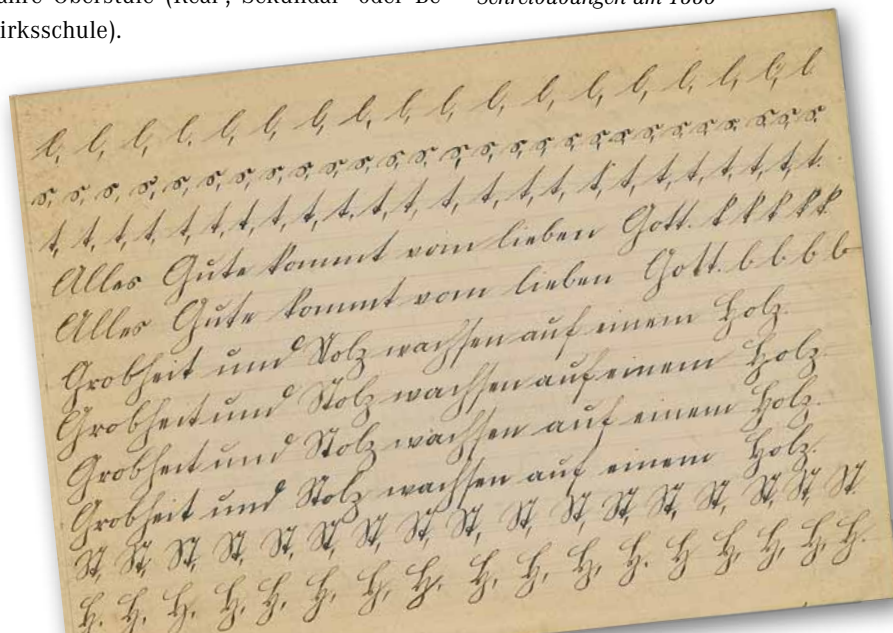 irksschule).
l, l, l, l. l, l, l, l, l, l, l, l, l, l, l, l, l, l
s, s, s, s, s, s, s, s, s, s, s, s, s, s, s, s, s, s, s, s, s, s, s, s, s, s
t, t, t, t, t, t, t, t, t, t, t, t, t, t, t, t, t, t, t, t, t, t, t, t.
Alles Gute kommt vom lieben Gott. k k k k k
Alles Gute kommt vom lieben Gott. b b b b
Grobheit und Stolz wachsen auf einem Holz.
Grobheit und Stolz wachsen auf einem Holz.
Grobheit und Stolz wachsen auf einem Holz.
Grobheit und Stolz wachsen auf einem Holz.
St, St, St, St, St, St, St, St, St, St, St, St, St, St, St, St, St.
H. H, H, H, H, H, H, H. H, H, H, H. H H, H, H, H.